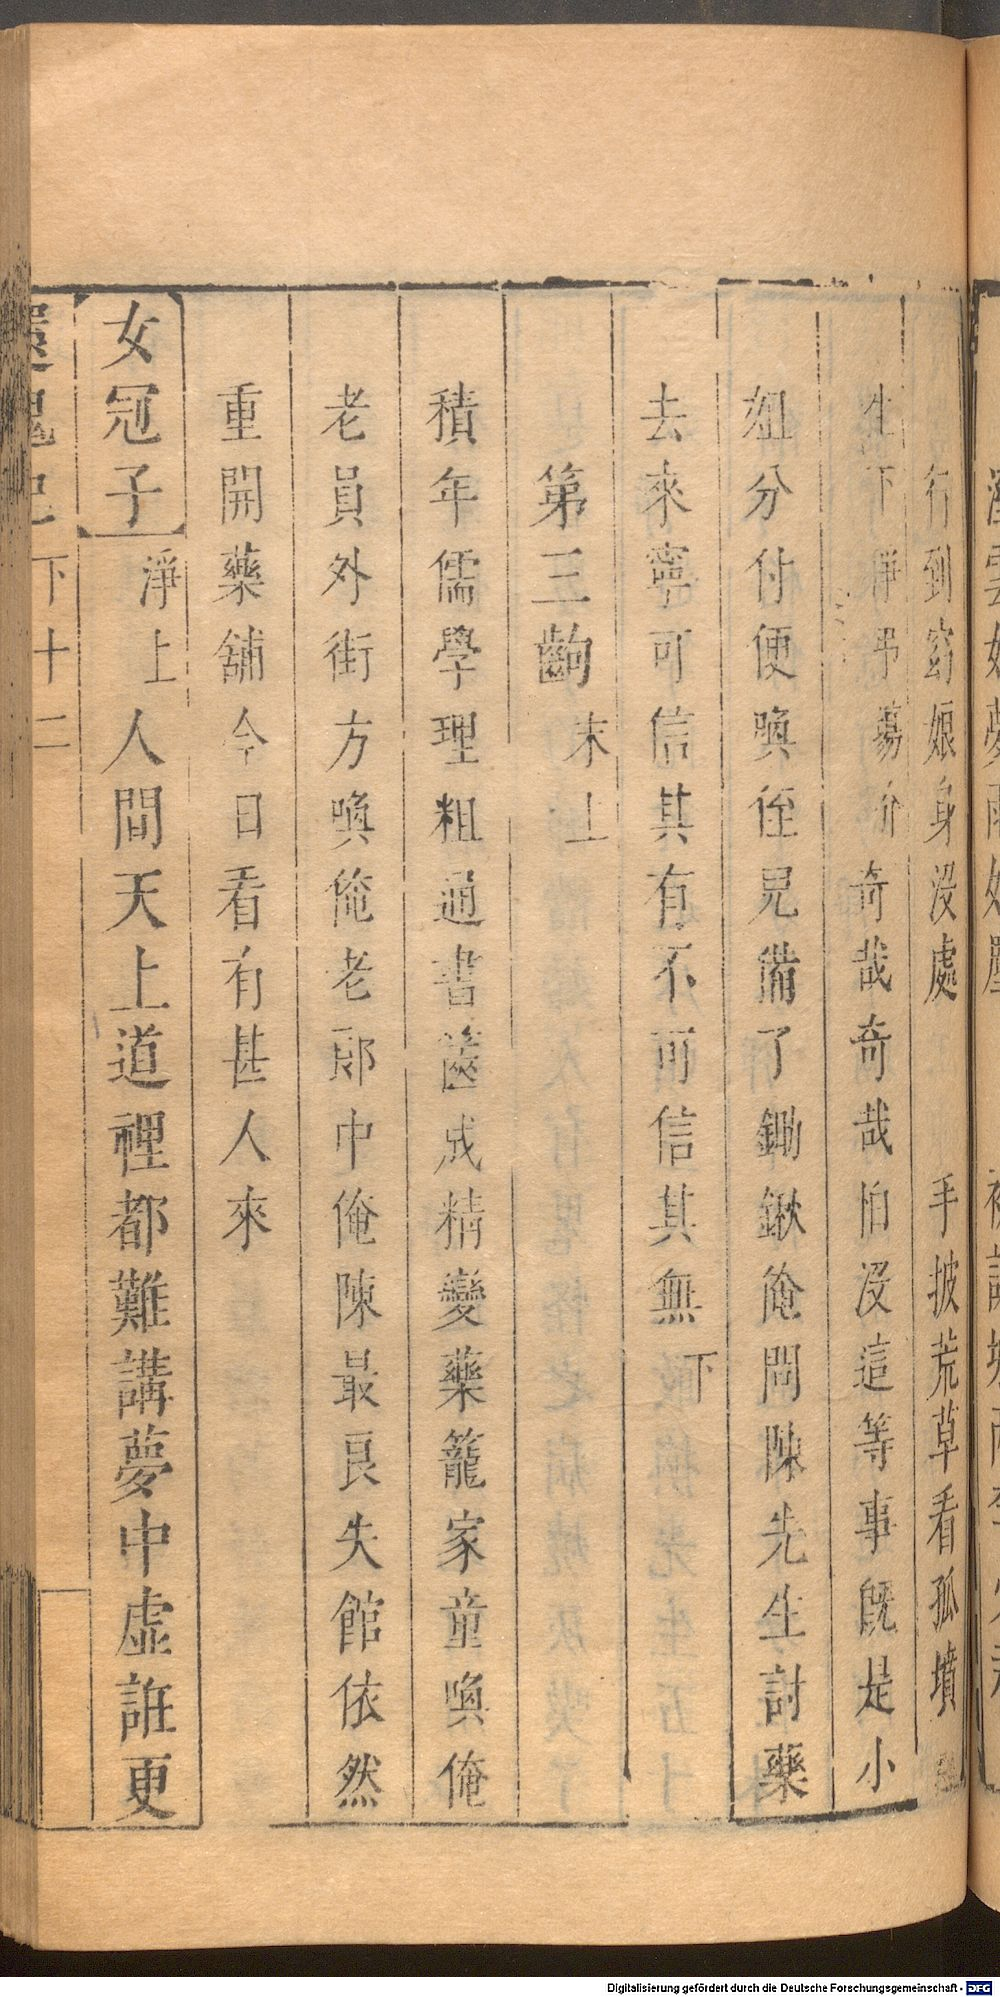 行到窈娘身沒處　手披荒草看孤墳
生下　淨弔場介　奇哉奇哉怕沒這等事旣是小
姐分付便喚侄兒備了鋤鍬俺問陳先生討藥
去來寧可信其有不可信其無　下
第三齣　末上
積年儒學理粗通書篋成精變藥籠家童喚俺
老員外街方喚俺老郎中俺陳最良失館依然
重開藥舖今日看有甚人來
女冠子　淨上　人間天上道裡都難講夢中虛誑更
還魂記　下　十二
Digitalisierung gefördert durch die Deutsche Forschungsgemeinschaft - DFG